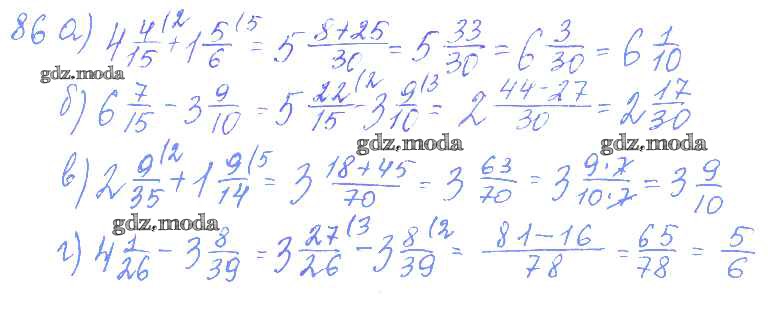 86 а) 4 4/15 (2 + 1 5/6 (5 = 5 (8+25)/30 = 5 33/30 = 6 3/30 = 6 1/10
gdz.moda
б) 6 7/15 - 3 9/10 = 5 22/15 (2 - 3 9/10 (3 = 2 (44-27)/30 = 2 17/30
gdz.moda gdz.moda
в) 2 9/35 (2 + 1 9/14 (5 = 3 (18+45)/70 = 3 63/70 = 3 (9·7)/(10·7) = 3 9/10
gdz.moda
г) 4 1/26 - 3 8/39 = 3 27/26 (3 - 3 8/39 (2 = (81-16)/78 = 65/78 = 5/6